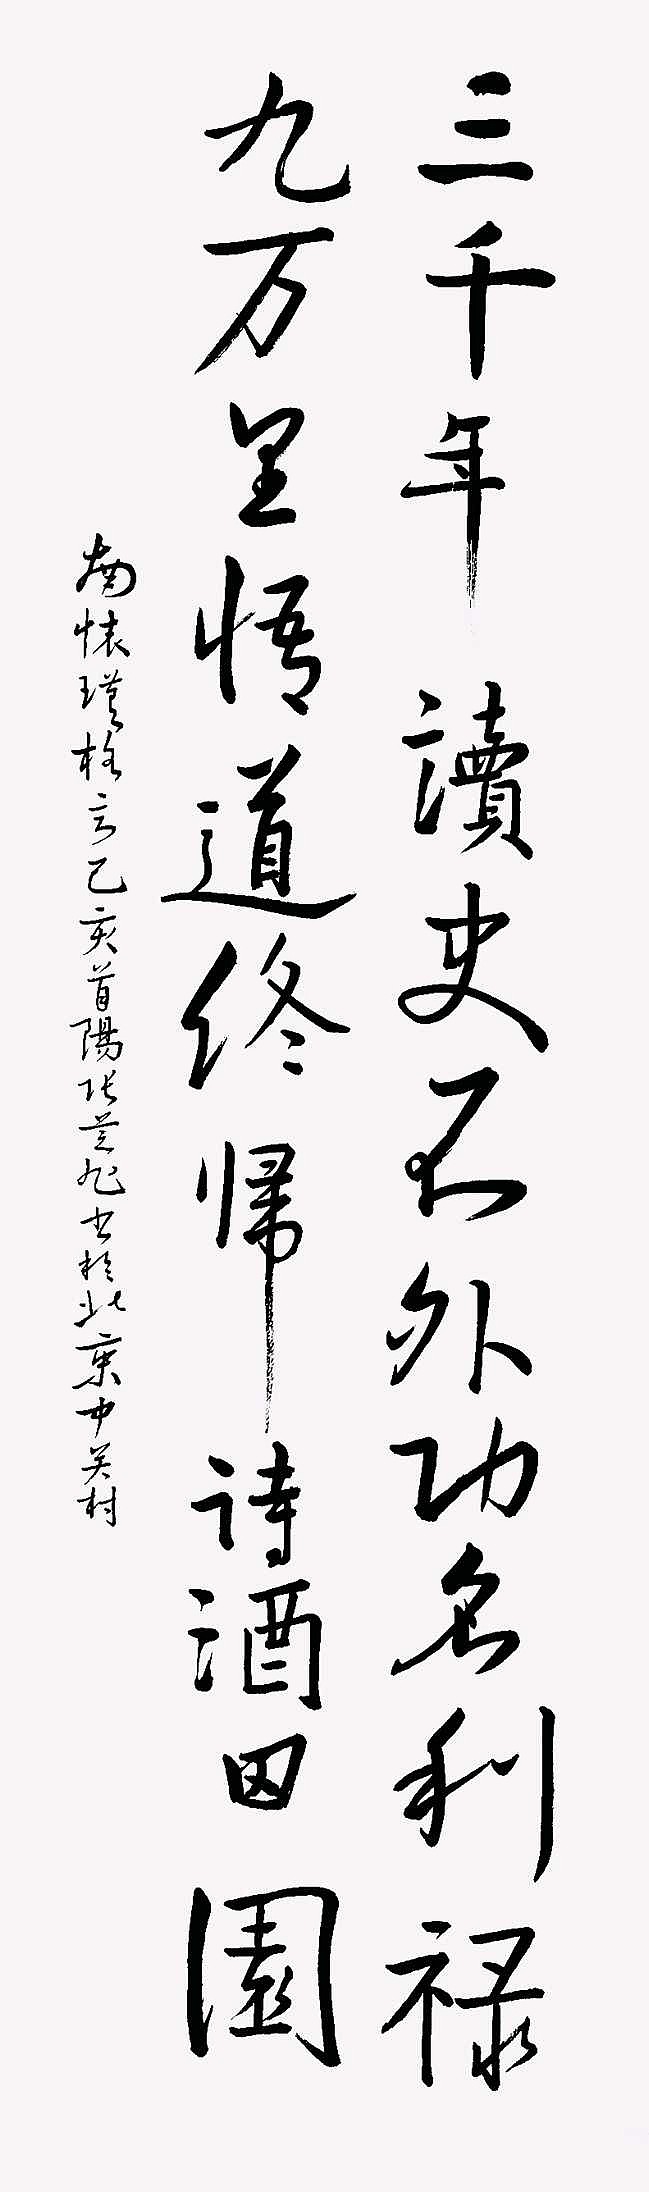 三千年 讀史不外功名利禄
九万里悟道终帰诗酒田園
南怀瑾格言己亥首陽张芝旭书於北京中关村